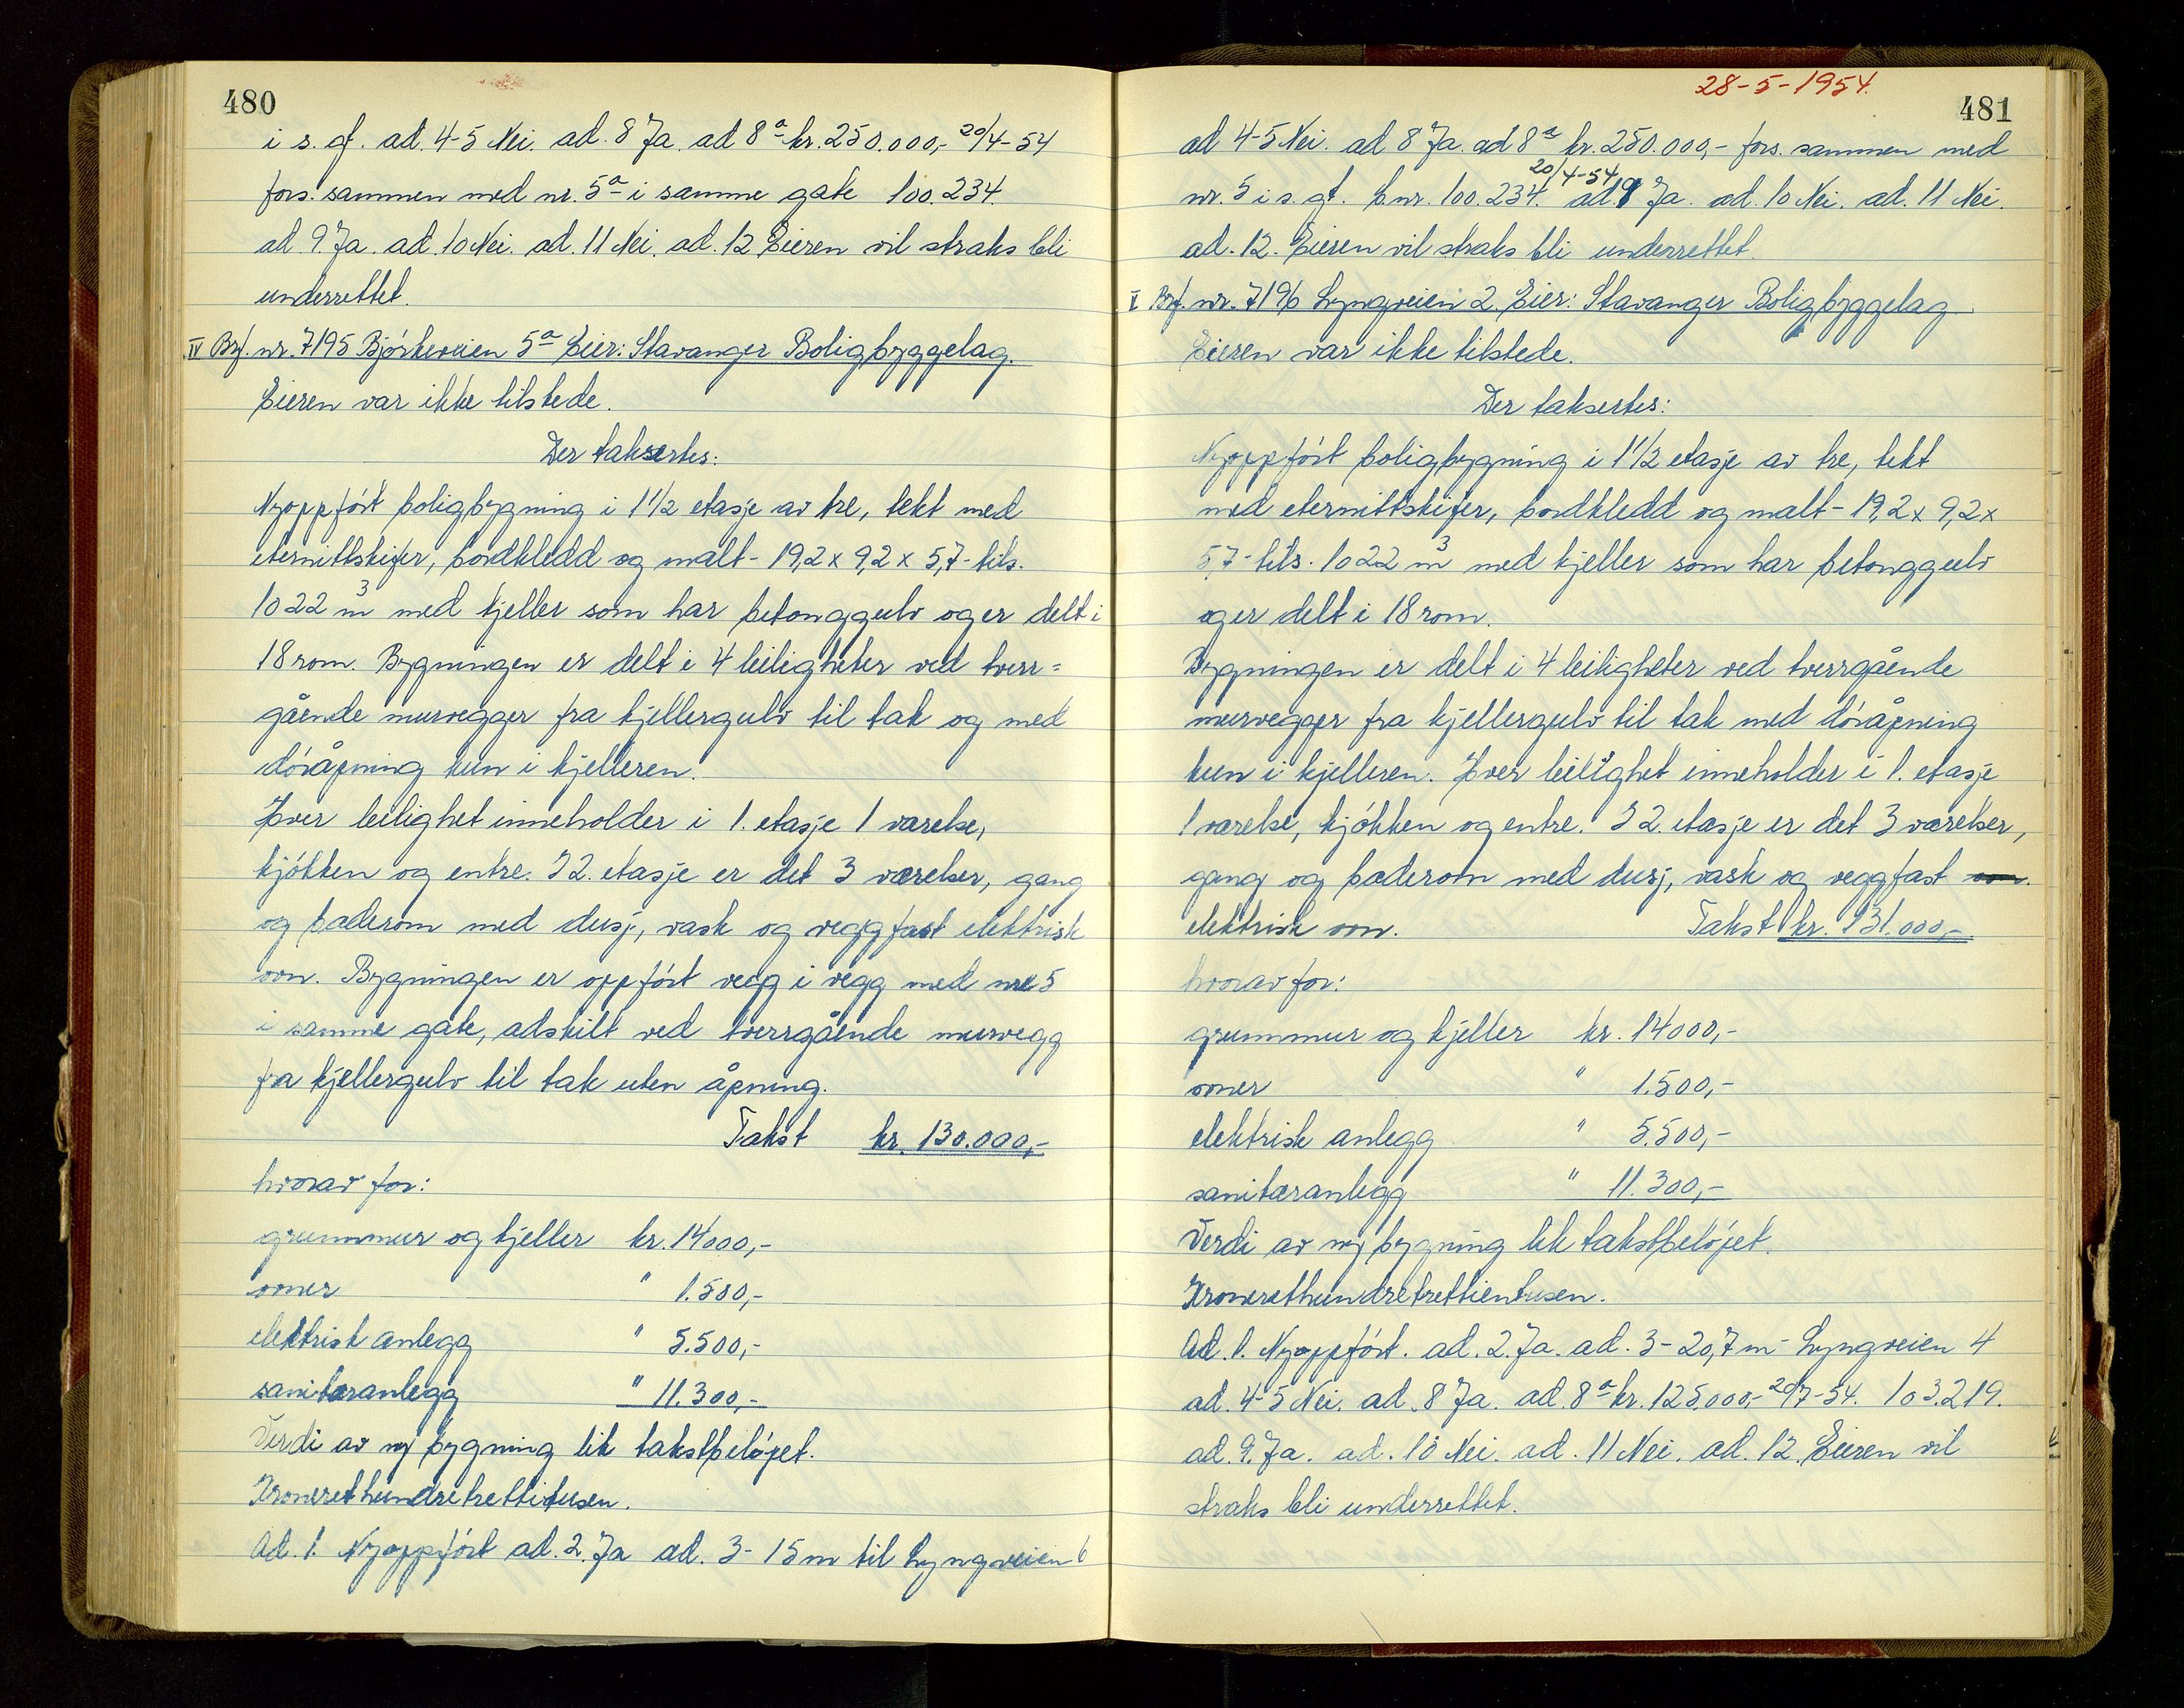 480
i s. gt. ad. 4-5 Nei. ad. 8 Ja. ad 8a kr. 250.000,- 20/4-54
fors. sammen med nr. 5a i samme gate 100.234.
ad. 9. Ja. ad. 10 Nei. ad. 11 Nei. ad. 12 Eieren vil straks bli
underrettet.
IV Brf. nr. 7195 Bjórkeveien 5a Eier: Stavanger Boligbyggelag.
Eieren var ikke tilstede.
Der taksertes:
Nyoppfórt boligbygning i 1 1/2 etasje av tre, tekt med
eternittskifer, bordkledd og malt - 19,2 x 9,2 x 5,7 - tils.
1022 m3 med kjeller som har betonggulv og er delt i
18 rom. Bygningen er delt i 4 leiligheter ved tverr=
gående murvegger fra kjellergulv til tak og med
dóråpning kun i kjelleren.
Hver leilighet inneholder i 1. etasje 1 værelse,
kjókken og entre. I 2. etasje er det 3 værelser, gang
og baderom med dusj, vask og veggfast elektrisk
ovn. Bygningen er oppfórt vegg i vegg med nre 5
i samme gate, adskilt ved tverrgående murvegg
fra kjellergulv til tak uten åpning.
Takst kr. 130.000,-
hvorav for:
grunnmur og kjeller kr. 14000,-
ovner " 1.500,-
elektrisk anlegg " 5.500,-
sanitæranlegg " 11.300,-
Verdi av ny bygning lik takstbelópet.
Kroneretthundretrettitusen.
Ad. 1. Nyoppfórt ad. 2. Ja ad. 3 - 15 m til Lyngveien 6
28-5-1954.
481
ad 4-5 Nei. ad 8 Ja. ad 8a kr. 250.000,- fors. sammen med
20/4-54
nr. 5 i s. gt. b.nr. 100.234. ad. 9 Ja. ad. 10 Nei. ad. 11 Nei.
ad. 12. Eieren vil straks bli underrettet.
V Brf. nr. 7196 Lyngveien 2. Eier: Stavanger Boligbyggelag.
Eieren var ikke tilstede.
Der taksertes:
Nyoppfórt boligbygning i 1 1/2 etasje av tre, tekt
med eternittskifer, bordkledd og malt - 19,2 x 9,2 x
5,7 - tils. 1022 m3 med kjeller som har betonggulv
og er delt i 18 rom.
Bygningen er delt i 4 leiligheter ved tverrgående
murvegger fra kjellergulv til tak med dóråpning
kun i kjelleren. Hver leilighet inneholder i 1. etasje
1 værelse, kjókken og entre. I 2. etasje er det 3 værelser,
gang og baderom med dusj, vask og veggfast ovn.
elektrisk ovn. Takst kr. 131.000,-
hvorav for:
grunnmur og kjeller kr. 14000,-
ovner " 1.500,-
elektrisk anlegg " 5.500,-
sanitæranlegg " 11.300,-
Verdi av ny bygning lik takstbelópet.
Kroneretthundretrettientusen.
Ad. 1. Nyoppfórt. ad. 2. Ja. ad. 3 - 20,7 m - Lyngveien 4
ad. 4-5 Nei. ad. 8 Ja. ad. 8a kr. 125.000,- 20/7-54. 103.219.
ad. 9. Ja. ad. 10 Nei. ad. 11 Nei. ad. 12. Eieren vil
straks bli underrettet.